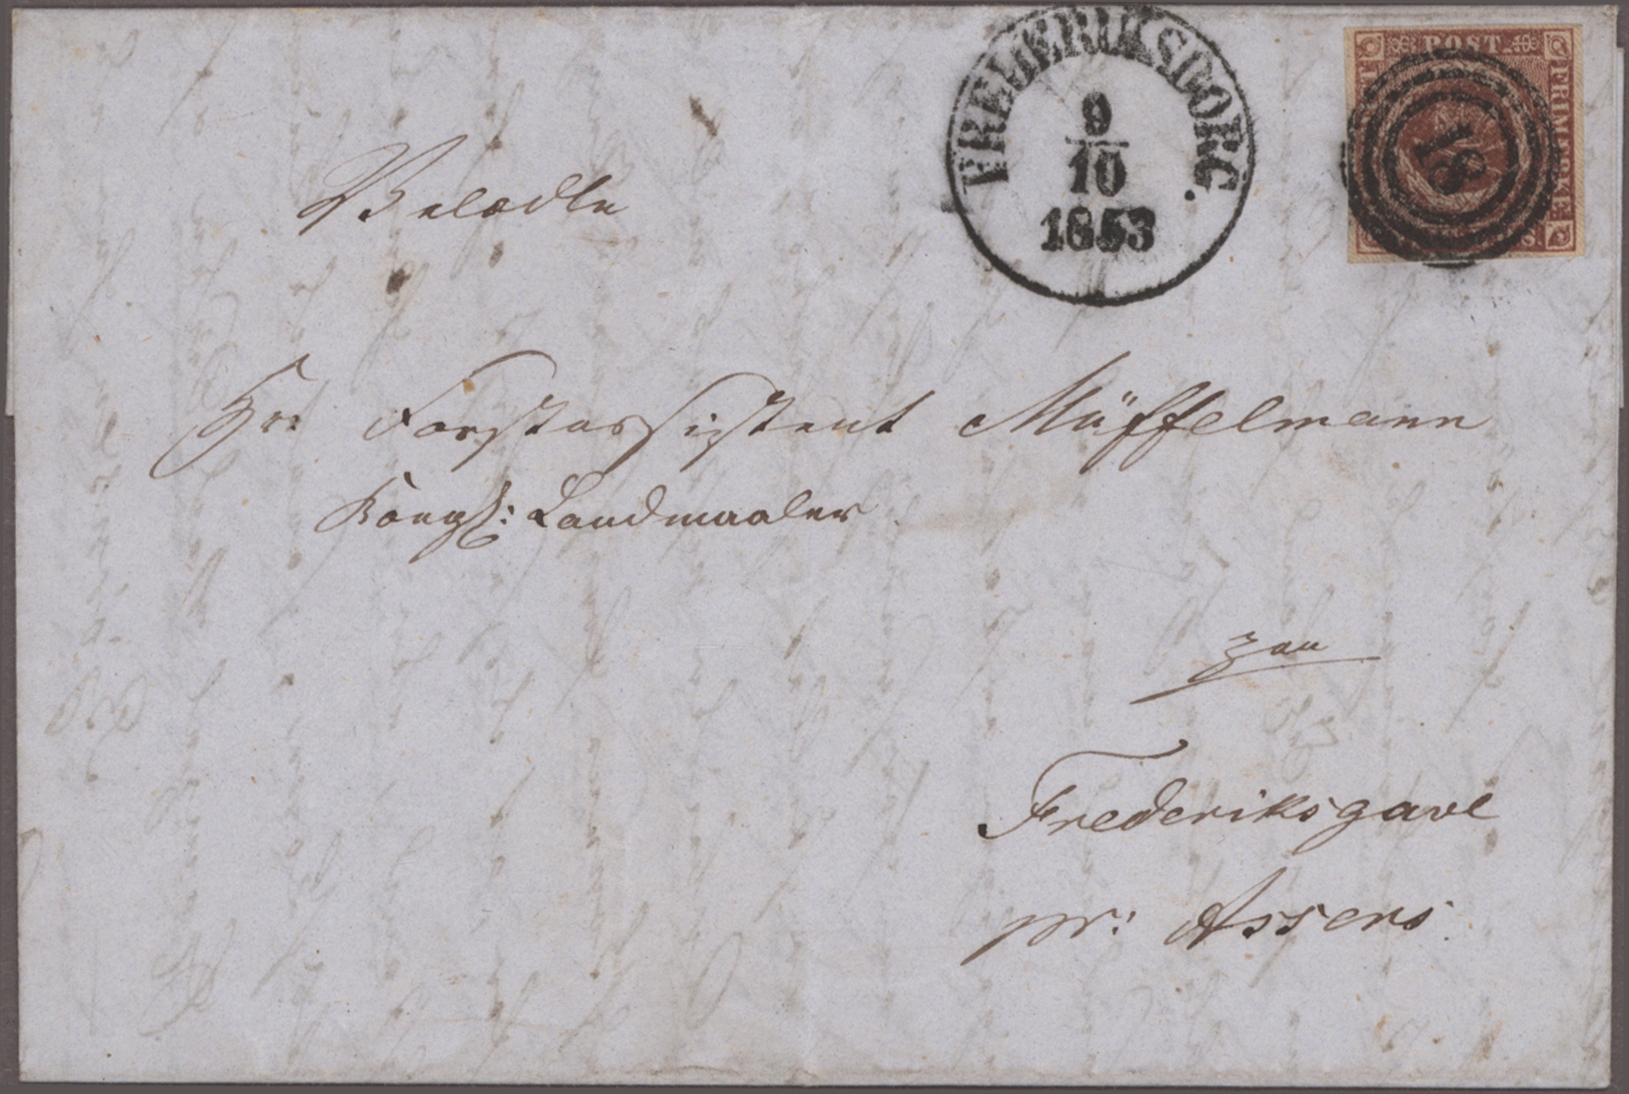 FREDERIKSBORG.
9
10
1853
POST
FRIMÆRKE
18
Velædle
Hr: Forstassistent Müffelmann
Kongl: Landmaaler
paa
Frederiksgave
pr: Assens